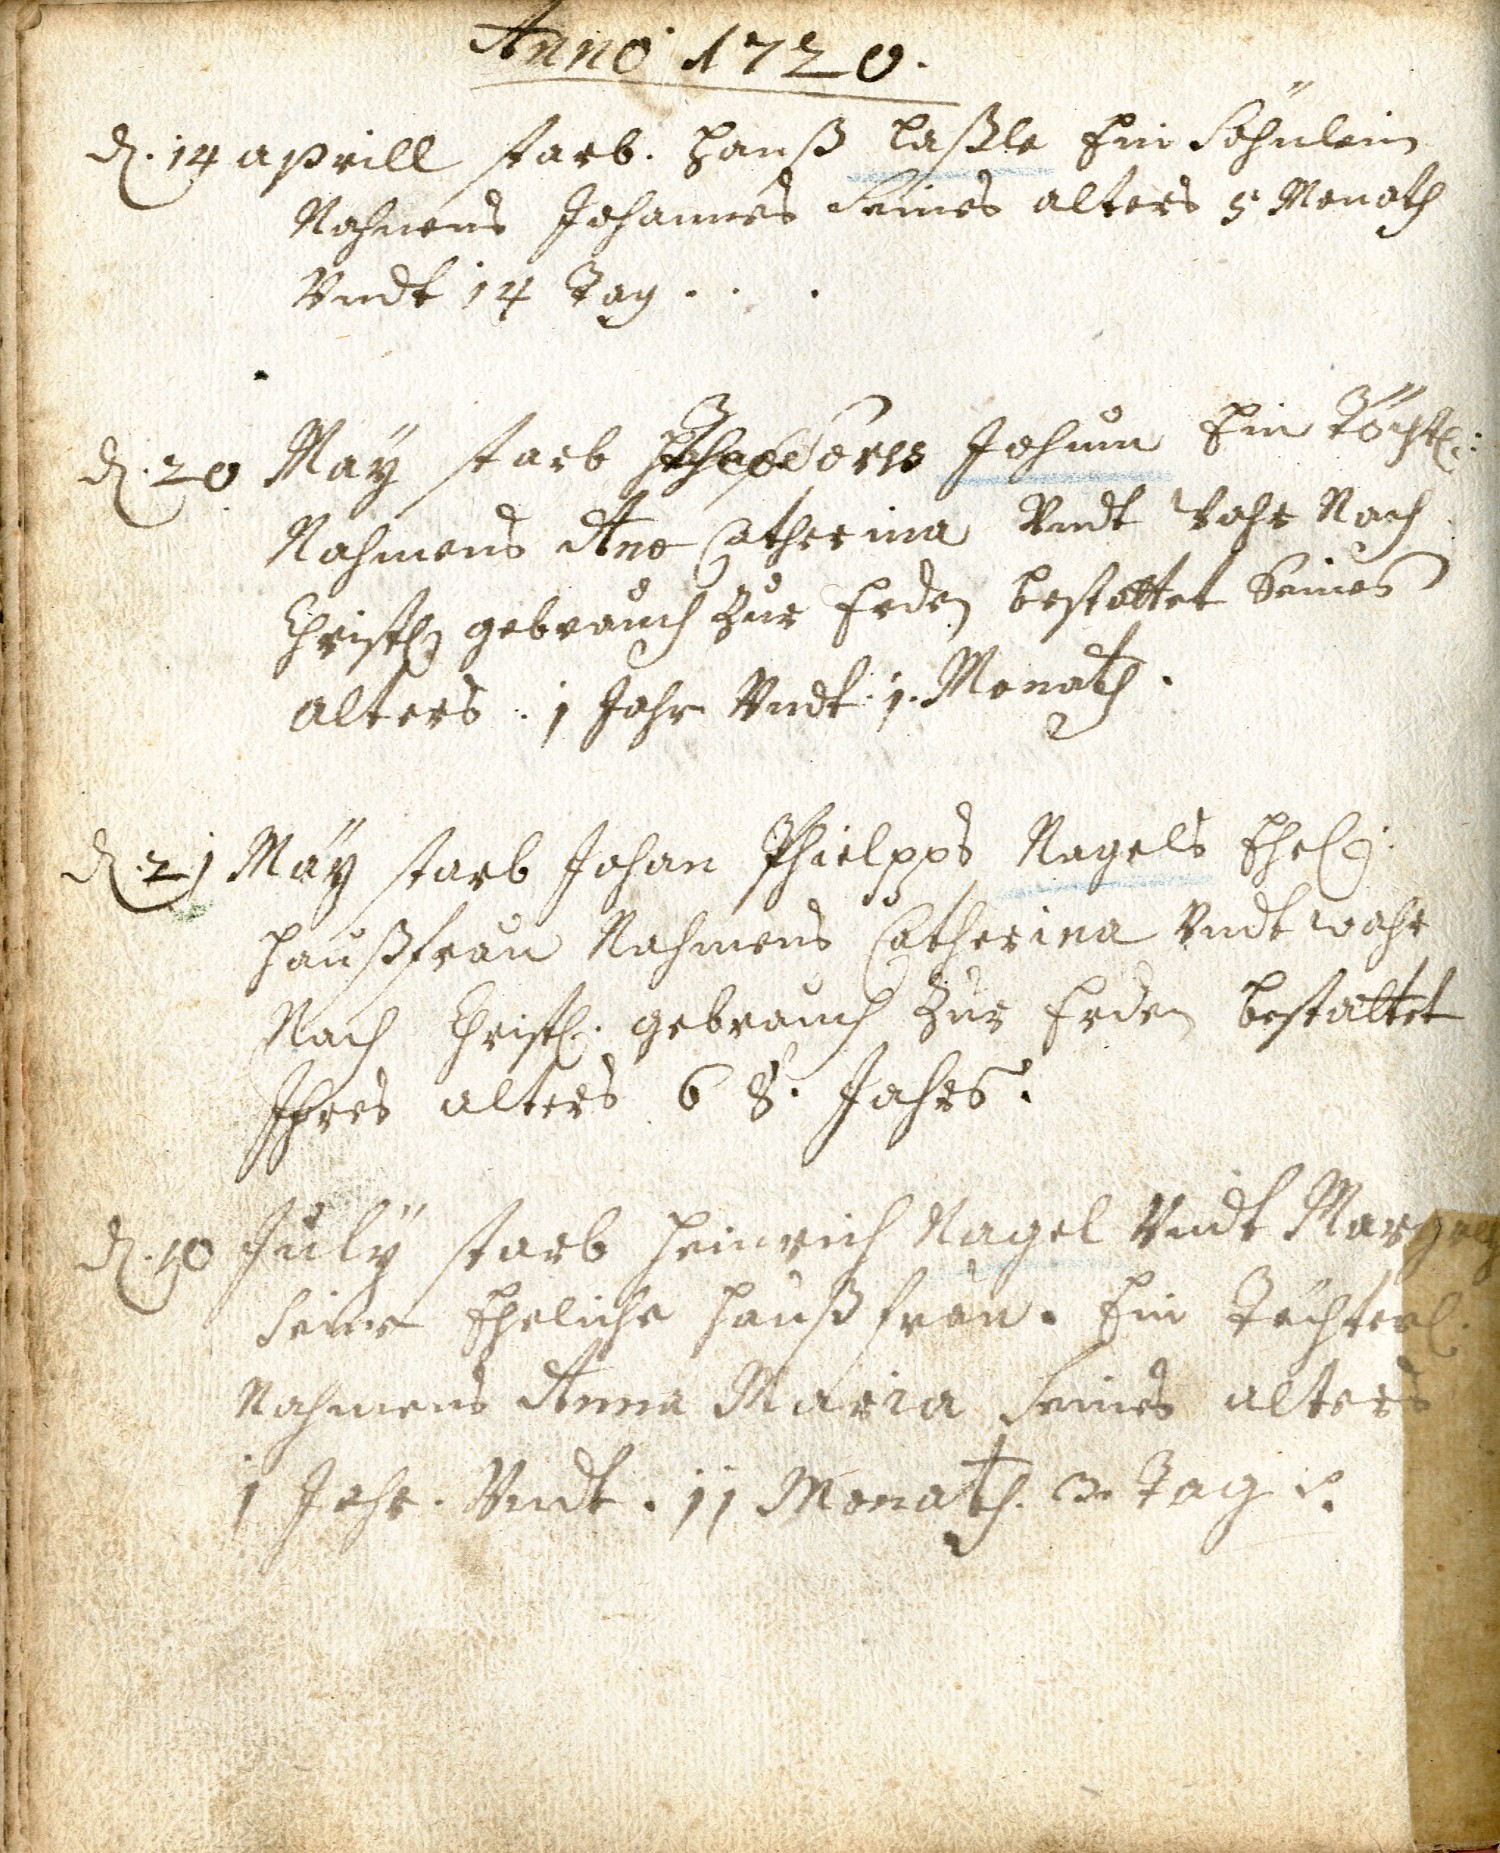 Anno 1720.
d. 14 aprill starb. Hanß Laßle Ein Söhnlein
Nahmens Johannes Seines alters 5 Monath
Vndt 14 Tag . . .
d. 20 Maÿ starb Johum Ein Töchtl:
Nahmens Ane Catherina Vndt Wahr Nach
Christl. gebrauch Zur Erden bestattet Seines
alters . 1 Jahr Vndt . 1. Monath .
d. 21 Maÿ starb Johan Phielpps Nagels Ehel.
Haußfrau Nahmens Catherina Vndt wahr
Nach Christl. gebrauch Zur Erden bestattet
Ihres alters 68. Jahrs.
d. 10 Julÿ starb Heinrich Nagel Vndt
Seine Eheliche Haußfrau. Ein Töchterl.
Nahmens Anna Maria Seines alters
1 Jahr. Vndt . 11 Monath. 3. Tag